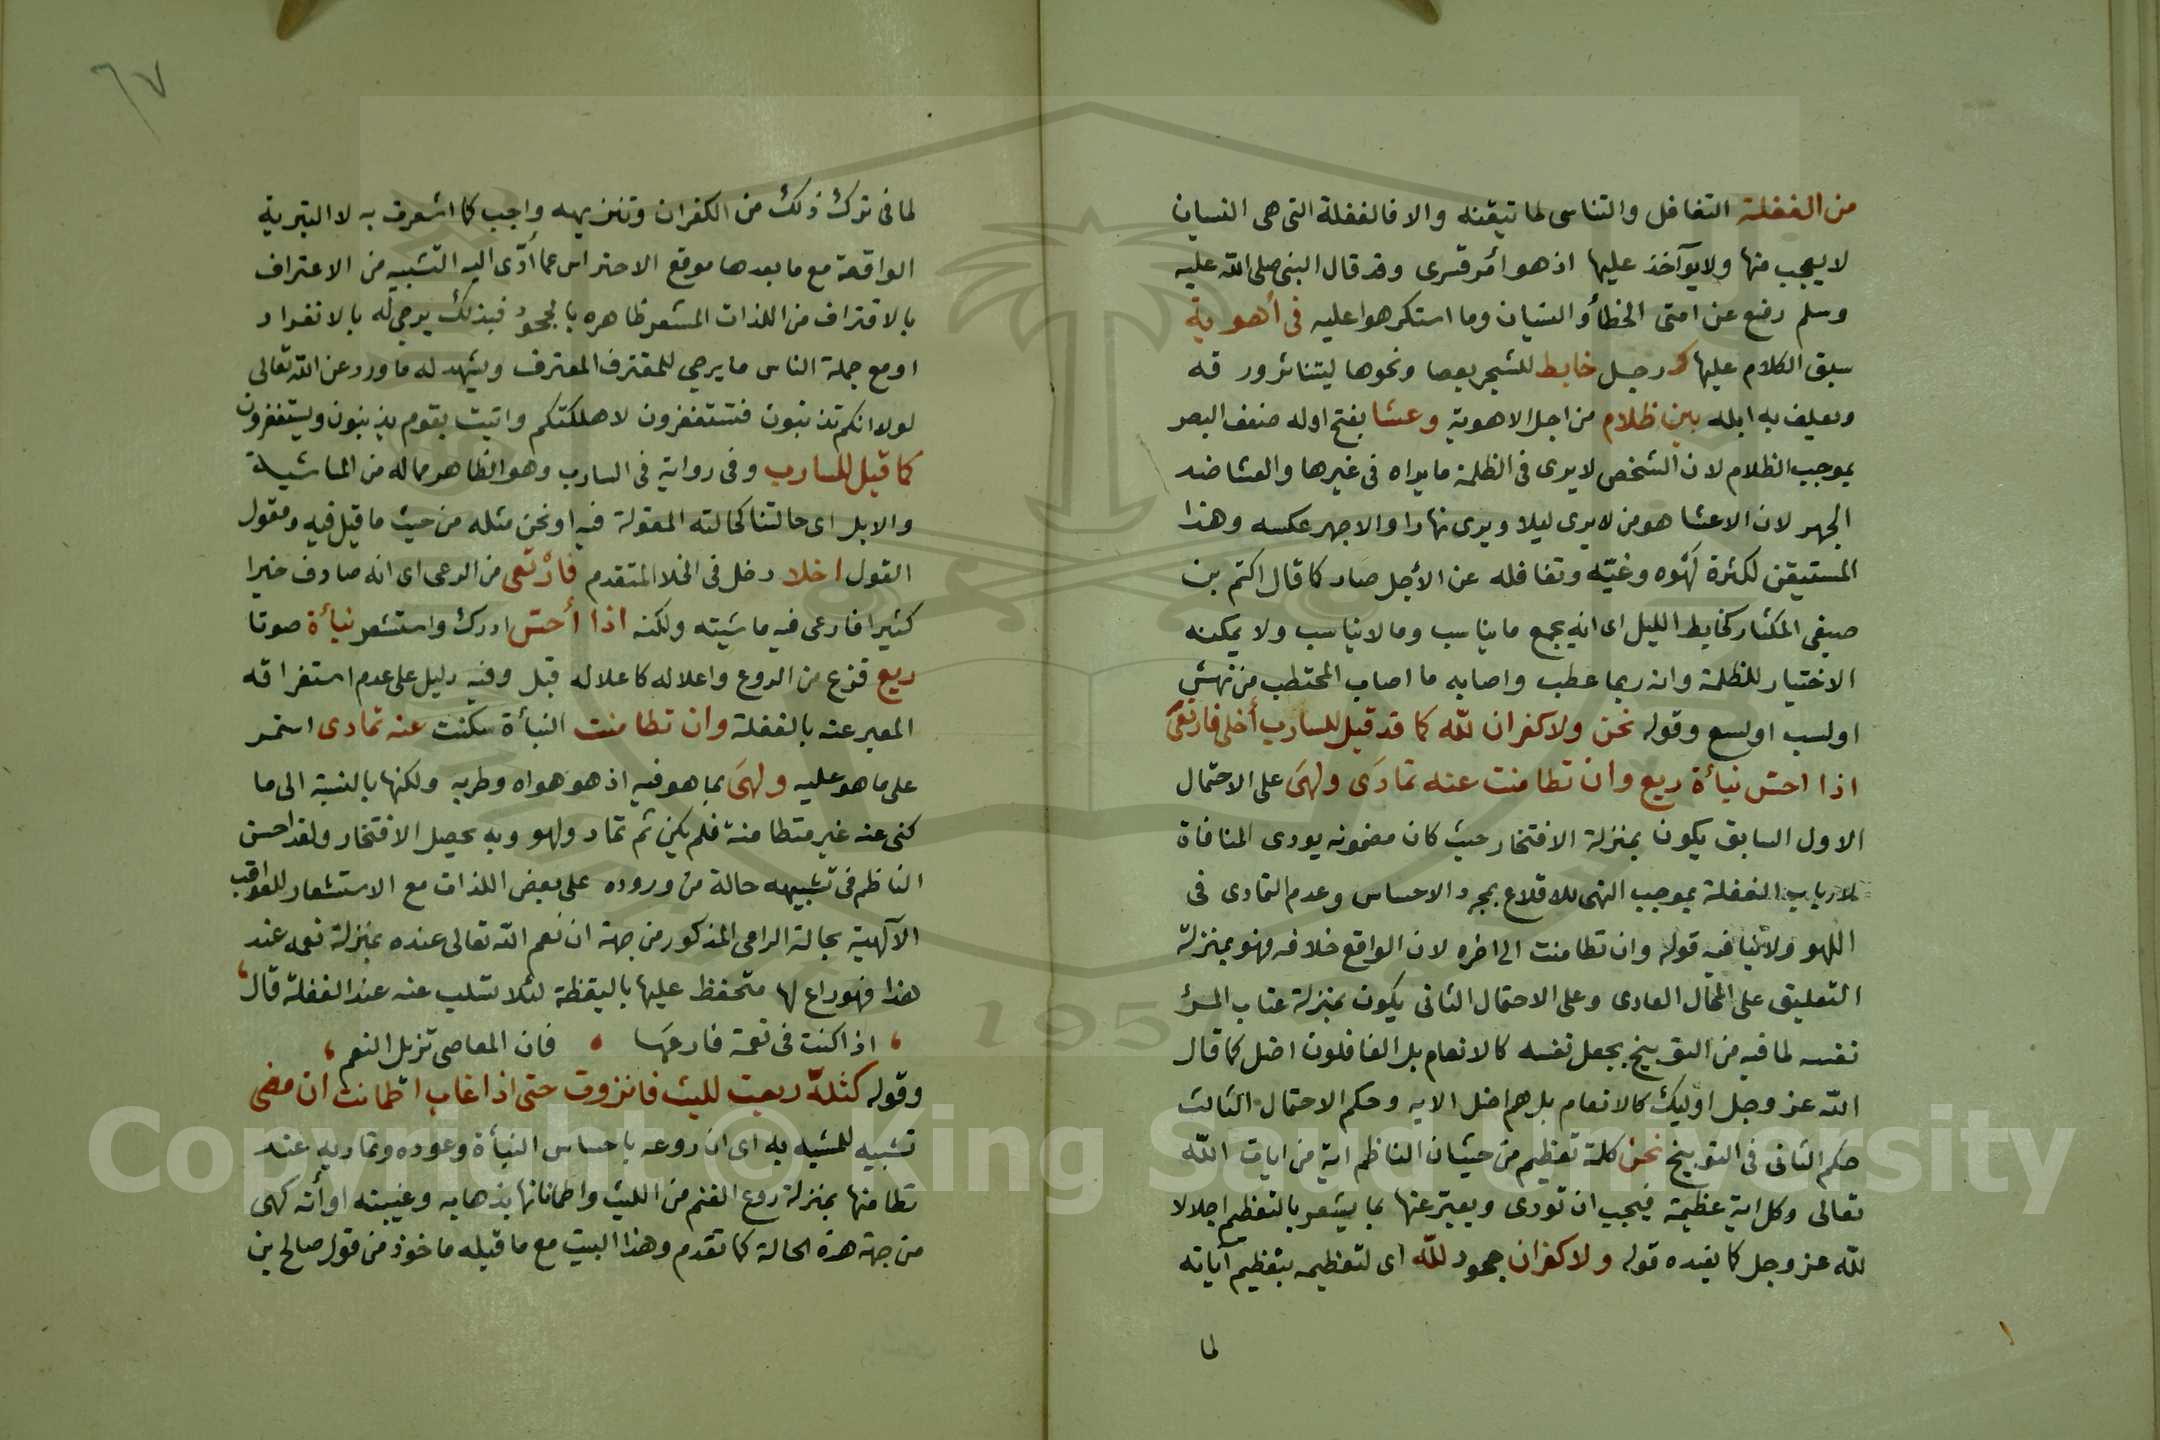 من الغفلة التغافل والتناسى لما تيقنه والا فالغفلة التى هى النسيان
لا يعجب منها ولا يوآخذ عليها اذ هو امر قسرى وقد قال النبى صلى الله عليه
وسلم رفع عن امتى الخطأ والنسيان وما استكرهوا عليه فى أهوية
سبق الكلام عليها كرجل خابط للشجر بعصا ونحوها ليتناثر ورقه
ويعلف به ابله بين ظلام من اجل الاهوية وعشا بفتح اوله ضعف البصر
بموجب الظلام لان الشخص لا يرى فى الظلمة ما يراه فى غيرها والعشا ضد
الجهر لان الاعشا هو من لا يرى ليلا ويرى نهارا والاجهر عكسه وهذا
المستيقن لكثرة لهوه وغيّه وتغافله عن الأجل صار كما قال اكثم بن
صيفى المكثار كخابط الليل اى انه يجمع ما يناسب وما لا يناسب ولا يمكنه
الاختيار للظلمة وانه ربما عطب واصابه ما اصاب المحتطب من نهش
او لسب او لسع وقوله نحن ولا كفران لله كما قد قيل للسارب أخلى فارتعى
اذا احس نبأة ريع وان تطامنت عنه تمادَى ولهَى على الاحتمال
الاول السابق يكون بمنزلة الافتخار حيث كان مضمونه يودى المنافاة
لارباب الغفلة بموجب النهى للاقلاع بمجرد الاحساس وعدم التمادى فى
اللهو ولا ينافيه قوله وان تطامنت الى اخره لان الواقع خلافه فهو بمنزلة
التعليق على المحال العادى وعلى الاحتمال الثانى يكون بمنزلة عتاب المرء
نفسه لما فيه من التوبيخ بجعل نفسه كالانعام بل الغافلون اضل كما قال
الله عز وجل اوليك كالانعام بل هم اضل الايه وحكم الاحتمال الثالث
حكم الثانى فى التوبيخ نحن كلمة تعظيم من حيث ان الناظم اية من ايات الله
تعالى وكل اية عظيمة فيجب ان تودى ويعبّر عنها بما يشعر بالتعظيم اجلالا
لله عز وجل كما يفيده قوله ولا كفران جحود لله اى لتعظيمه بتعظيم آياته
لما
٦٧
لما فى ترك ذلك من الكفران وتنزيهه واجب كما اشعرت به لا التبرية
الواقعة مع ما بعدها موقع الاحتراس عما أدّى اليه التشبيه من الاعتراف
بالاقتراف من اللذات المشعر ظاهره بالجحود فبذلك يرجى له بالانفراد
او مع جملة الناس ما يرجى للمقترف المعترف ويشهد له ما ورد عن الله تعالى
لولا انكم تذنبون فتستغفرون لاهلكتكم واتيت بقوم يذنبون ويستغفرون
كما قيل للسارب وفى رواية فى السارب وهو الظاهر مما له من الماشية
والابل اى حالتنا كحالته المقولة فيه او نحن مثله من حيث ما قيل فيه ومقول
القول اخلا دخل فى الخلا المتقدم فارْتعى من الرعى اى انه صادف خيرا
كثيرا فارعى فيه ماشيته ولكنه اذا أحسّ ادرك واستشعر نبأة صوتا
ريع فزع من الروع واعلاله كاعلاله قبل وفيه دليل على عدم استغراقه
المعبر عنه بالغفلة وان تطامنت النبأة سكنت عنه تمادى استمر
على ما هو عليه ولهىَ بما هو فيه اذ هو هواه وطربه ولكنها بالنسبة الى ما
كنى عنه غير متطامنة فلم يكن ثم تماد ولهو وبه يحصل الافتخار ولقد احسن
الناظم فى تشبيهه حالة من وروده على بعض اللذات مع الاستشعار للعواقب
الآلهية بحالة الراعى المذكور من جهة ان نعم الله تعالى عنده بمنزلة نعمه عند
هذا فهو راع لها متحفظ عليها باليقظة لئلا تسلب عنه عند الغفلة قال
اذا كنت فى نعمة فارعهَا فان المعاصى تزيل النعم
وقوله كثلّة ريعت لليث فانزوت حتى اذا غاب اطمانت ان مضى
تشبيه للمشبه به اى ان روعه باحساس النبأة وعوده وتماديه عند
تطامنها بمنزلة روع الغنم من الليث واطمانانها بذهابه وغيبته او أنه كهى
من جهة هذه الحالة كما تقدم وهذا البيت مع ما قبله ماخوذ من قول صالح بن
Copyright © King Saud University
195